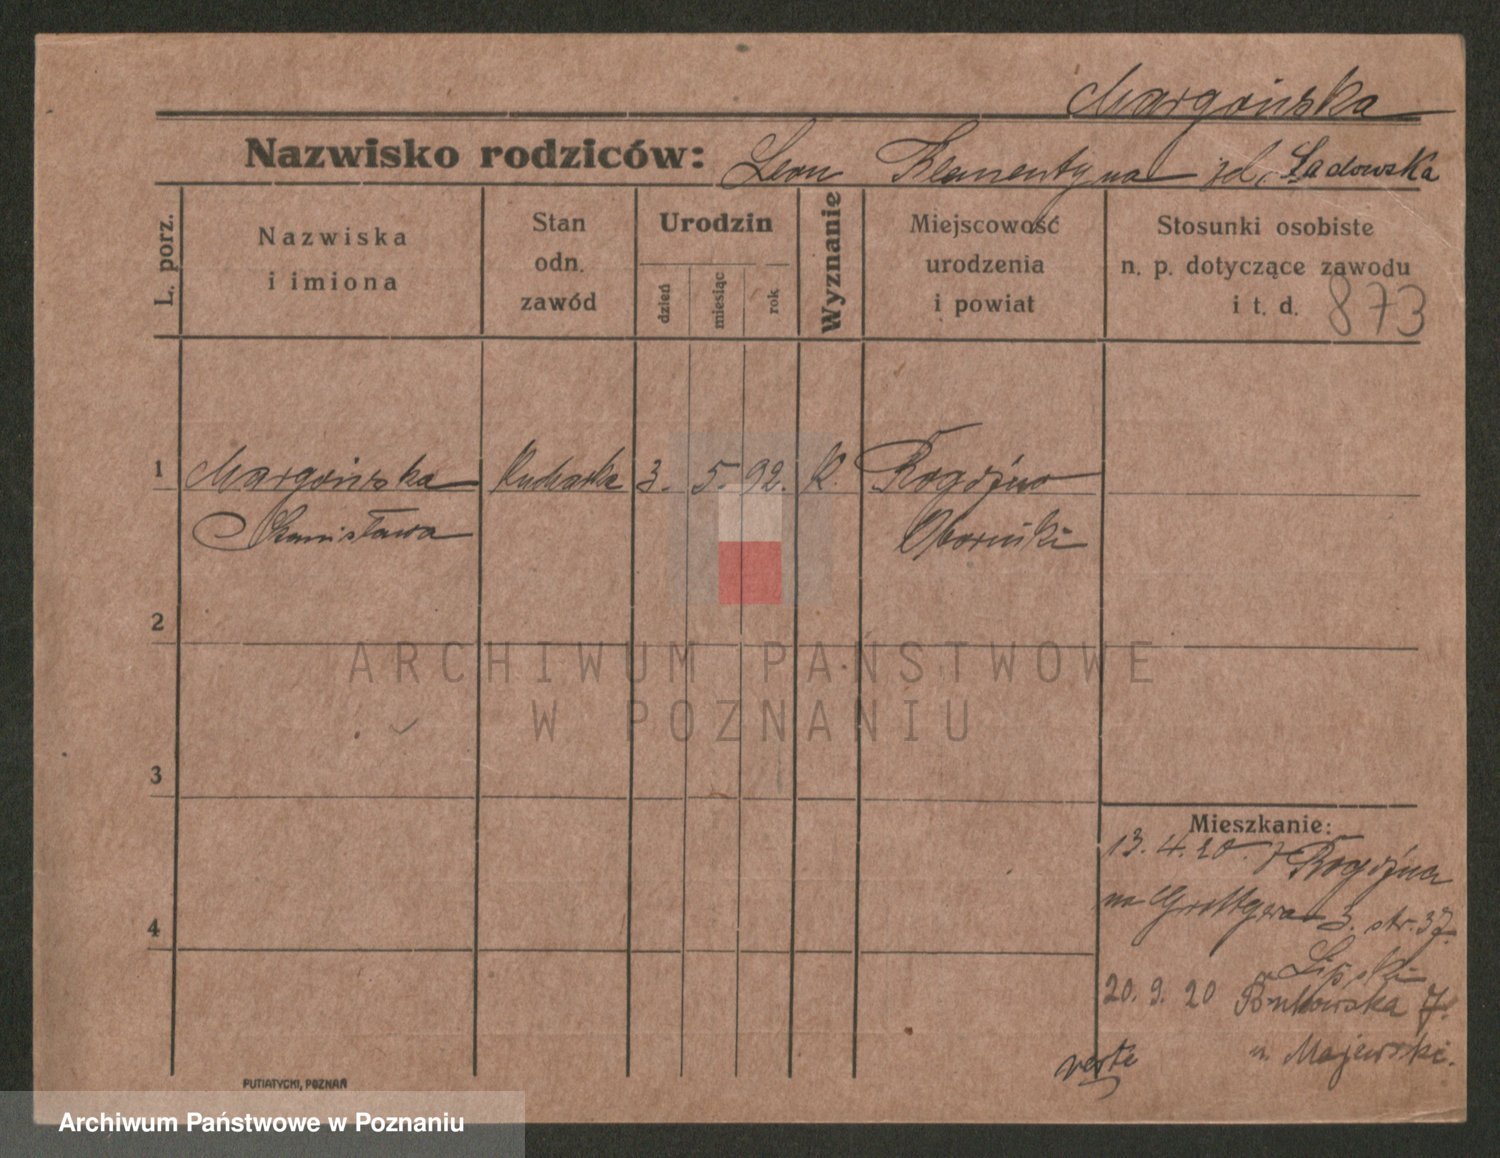 Margońska
Nazwisko rodziców: Leon Klementyna zd. Sadowska
L. porz.
Nazwiska
i imiona
Stan
odn.
zawód
Urodzin
dzień
miesiąc
rok
Wyznanie
Miejscowość
urodzenia
i powiat
Stosunki osobiste
n. p. dotyczące zawodu
i t. d. 873
1 Margońska Kucharka 3. 5. 92. K. Rogoźno
Stanisława Oborniki
2
ARCHIWUM PAŃSTWOWE
W POZNANIU
3
Mieszkanie:
13. 4. 20. z Rogoźna
na Grottgera 3. str. 37.
4
Lipski
20. 9. 20 Bukowska 7.
u. Majewski.
verte
PUTIATYCKI, POZNAŃ
Archiwum Państwowe w Poznaniu